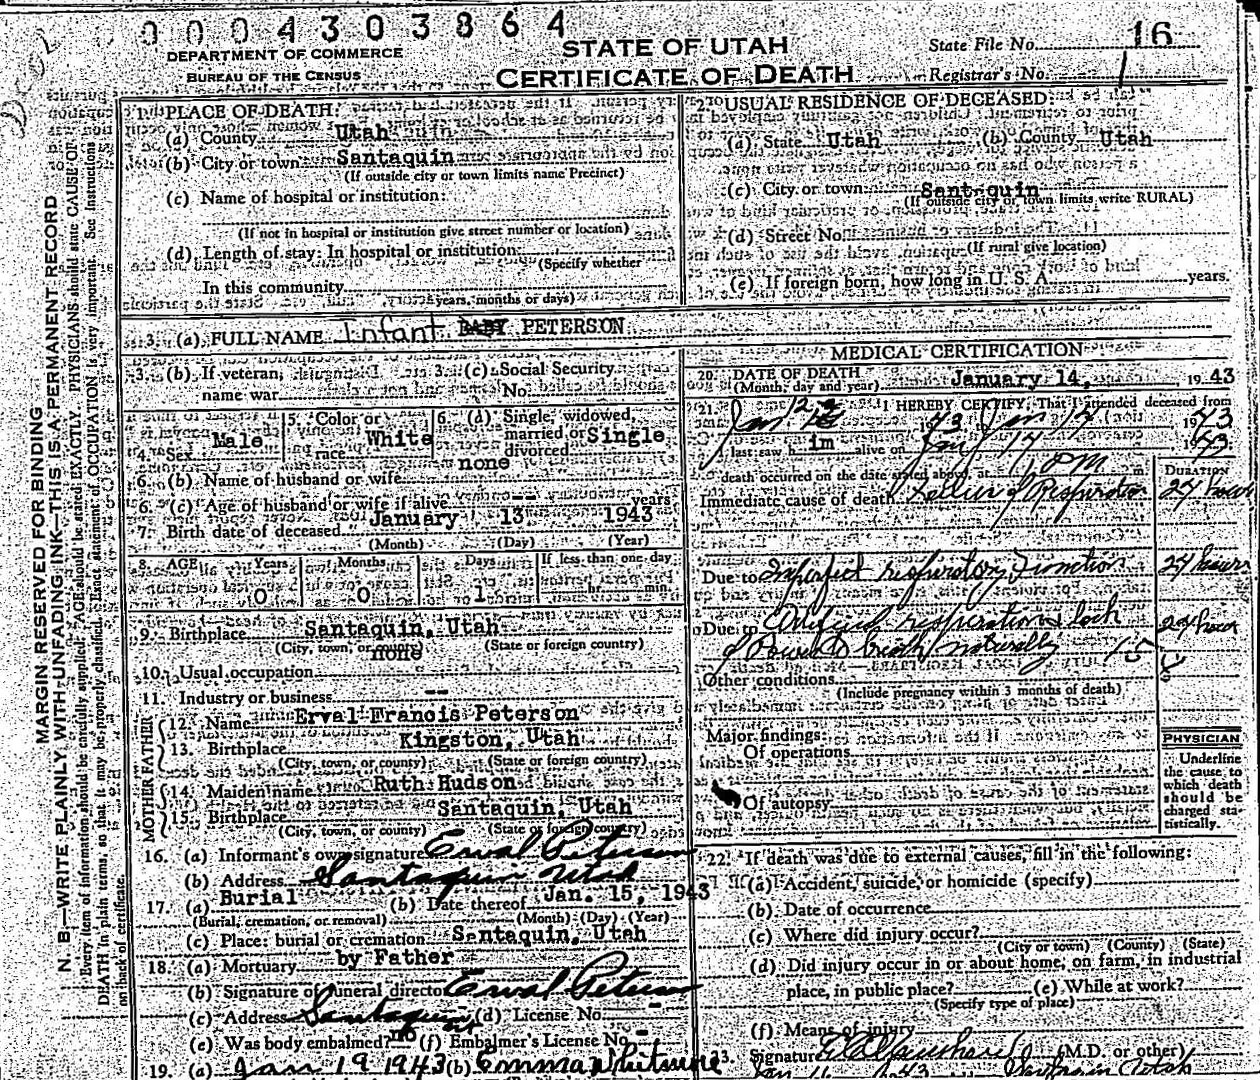 0004303864
DEPARTMENT OF COMMERCE
BUREAU OF THE CENSUS
STATE OF UTAH
CERTIFICATE OF DEATH
State File No. 16
Registrar's No. 1
MARGIN RESERVED FOR BINDING
N. B.—WRITE PLAINLY WITH UNFADING INK—THIS IS A PERMANENT RECORD
Every item of information should be carefully supplied. AGE should be stated EXACTLY. PHYSICIANS should state CAUSE OF
DEATH in plain terms, so that it may be properly classified. Exact statement of OCCUPATION is very important. See Instructions
on back of certificate.
PLACE OF DEATH:
(a) County Utah
(b) City or town Santaquin
(If outside city or town limits name Precinct)
(c) Name of hospital or institution:
(If not in hospital or institution give street number or location)
(d) Length of stay: In hospital or institution
(Specify whether
In this community
years, months or days)
USUAL RESIDENCE OF DECEASED:
(a) State Utah (b) County Utah
(c) City or town Santaquin
(If outside city or town limits write RURAL)
(d) Street No.
(If rural give location)
(e) If foreign born, how long in U. S. A. years.
3. (a) FULL NAME Infant BABY PETERSON
3. (b) If veteran, name war
3. (c) Social Security No.
4. Sex Male
5. Color or race White
6. (a) Single, widowed, married or divorced Single
6. (b) Name of husband or wife none
6. (c) Age of husband or wife if alive -- years
7. Birth date of deceased January 13 1943
(Month) (Day) (Year)
8. AGE Years Months Days If less than one day
0 0 1 hr. min.
9. Birthplace Santaquin, Utah
(City, town, or county) (State or foreign country)
10. Usual occupation none
11. Industry or business --
FATHER
12. Name Erval Francis Peterson
13. Birthplace Kingston, Utah
(City, town, or county) (State or foreign country)
MOTHER
14. Maiden name Ruth Hudson
15. Birthplace Santaquin, Utah
(City, town, or county) (State or foreign country)
16. (a) Informant's own signature Erval Peterson
(b) Address Santaquin Utah
17. (a) Burial (b) Date thereof Jan. 15, 1943
(Burial, cremation, or removal) (Month) (Day) (Year)
(c) Place: burial or cremation Santaquin, Utah
18. (a) Mortuary by Father
(b) Signature of funeral director Erval Peterson
(c) Address Santaquin (d) License No. -
(e) Was body embalmed? no (f) Embalmer's License No. -
19. (a) Jan 19 1943 (b) Emma Whitmore
MEDICAL CERTIFICATION
20. DATE OF DEATH
(Month, day and year) January 14, 1943
21. I HEREBY CERTIFY, That I attended deceased from
Jan 1943 Jan 14 1943
I last saw him alive on Jan 14 1943
death occurred on the date stated above, at PM m.
DURATION
Immediate cause of death of Respiration 24 hours
Due to Imperfect respiratory Function 24 hours
Due to Artificial respiration lack 24 hour
of Power to breath naturally
Other conditions
(Include pregnancy within 3 months of death)
Major findings:
Of operations
Of autopsy
PHYSICIAN
Underline
the cause to
which death
should be
charged sta-
tistically.
22. If death was due to external causes, fill in the following:
(a) Accident, suicide, or homicide (specify)
(b) Date of occurrence
(c) Where did injury occur?
(City or town) (County) (State)
(d) Did injury occur in or about home, on farm, in industrial
place, in public place? (e) While at work?
(Specify type of place)
(f) Means of injury
Signature (M.D. or other)